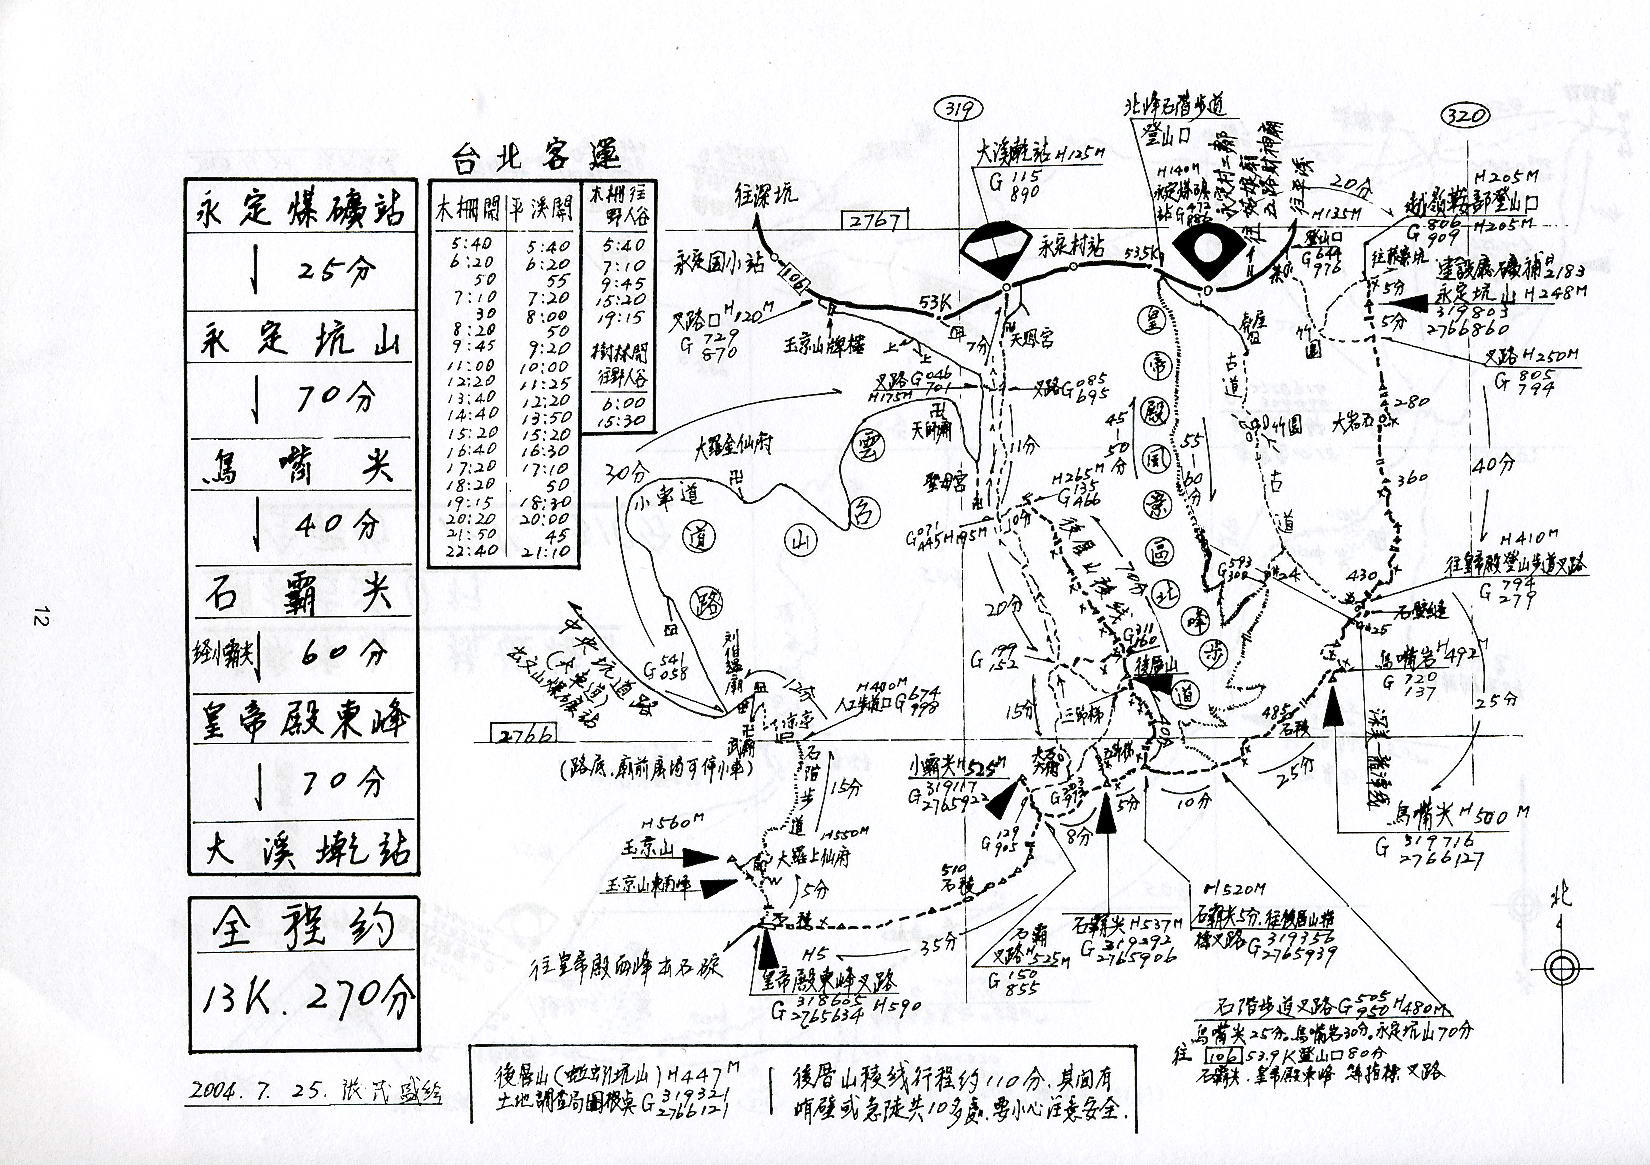 台北客運
永定煤礦站
↓ 25分
永定坑山
↓ 70分
烏嘴尖
↓ 40分
石霸尖
經小霸尖↓ 60分
皇帝殿東峰
↓ 70分
大溪墘站
全程約
13K. 270分
2004. 7. 25. 張茂盛繪
12
木柵開 平溪開
5:40 5:40
6:20 6:20
50 55
7:10 7:20
30 8:00
8:20 50
9:45 9:20
11:00 10:00
12:20 11:25
13:40 12:20
14:40 13:50
15:20 15:20
16:40 16:30
17:20 17:10
18:20 50
19:15 18:30
20:20 20:00
21:50 45
22:40 21:10
木柵往
野人谷
5:40
7:10
9:45
15:20
19:15
樹林開
往野人谷
6:00
15:30
319
320
2767
2766
往深坑
永定国小站
106
叉路口H120M
G 729
870
玉京山牌樓
53K
大溪墘站 H125M
G 115
890
永定村站
535K
北峰石階步道
登山口
H140M
永定煤礦
站G 472
往平溪
H135M
登山口
G 644
976
20分
H205M
越嶺鞍部登山口
G 806
909 H205M
往藤寮坑
建設廳礦補2183
永定坑山 H248M
319803
2766860
5分
5分
叉路 H250M
G 805
794
竹圍
280
大岩石
360
40分
H410M
往皇帝殿登山步道叉路
G 794
279
430
石壁縫
425
烏嘴岩 H492M
G 720
137
25分
烏嘴尖 H500M
G 319716
2766127
485
石稜
25分
10分
5分
8分
7分
天恩宮
叉路G 046
701
H175M
叉路G 085
695
天師廟
聖母宮
11分
45-50分
55-60分
H265M
G 135
466
10分
G 071
445 H195M
後厝山稜線
70分
20分
G 199
152
15分
G 311
160
後厝山
三卸梯
古道
竹圍
古道
G 593
300
424
皇帝殿風景區北峰步道
雲台山道路
大羅金仙府
小車道
30分
G 541
058
中央坑道路
刘伯溫廟
武廟
涼亭
12分
H400M
入口步道口G 674
999
(路底.廟前廣場可停小車)
石階步道
15分
H560M
玉京山
玉京山東南峰
H550M
大羅上仙府
5分
往皇帝殿西峰出石碇
皇帝殿東峰叉路
G 318605
2765634 H590
35分
510
石稜
小霸尖 H525M
G 319117
2765922
G 129
905
石霸
叉路 H525M
G 150
855
石霸尖 H537M
G 319292
2765906
H520M
石霸尖5分.往後厝山稜
線叉路G 319356
2765939
石階步道叉路G 505
950 H480M
烏嘴尖25分.烏嘴岩30分.永定坑山70分
往 106 53.9K登山口80分
石霸尖.皇帝殿東峰 等指標叉路
北
後厝山(蚯蚓坑山)H447M
土地調查局圖根点G 319321
2766121
後厝山稜線行程約110分.其間有
峭壁或急陡共10多處.要小心注意安全.